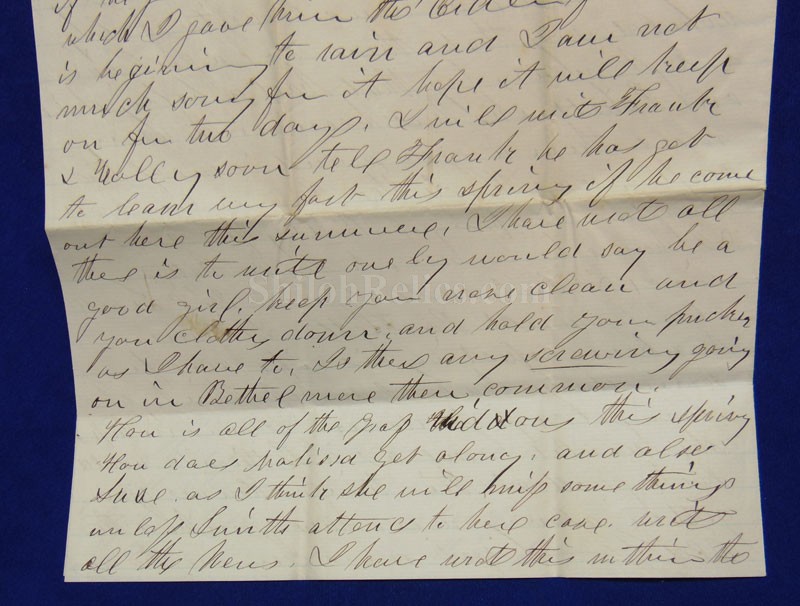 which I gave them the
is begining to rain and I am not
much sorry for it hope it will keep
on for two days. I will write Frank
& Wally soon tell Frank he has got
to learn very fast this spring if he come
out here this summer, I have wrote all
there is to write one by would say be a
good girl. keep you nose clean and
you clothes down, and hold your pucker
as I have to, Is there any screwing going
on in Bethel more then common.
How is all of the grap this spring
How does Malissa get along. and also
as I think she will miss some things
unless Smith attend to her case. write
all the News. I have wrote this within the
ShilohRelics.com